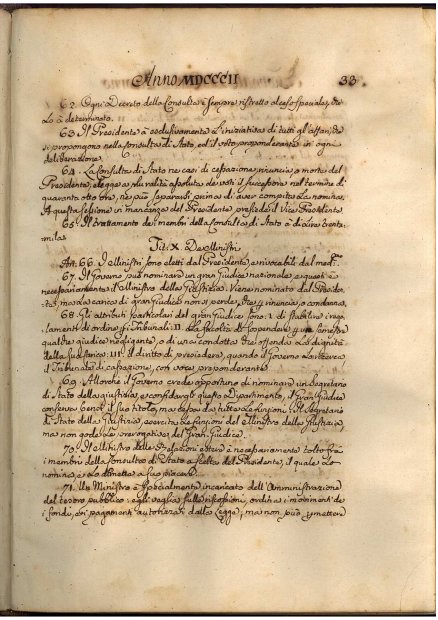 Anno MDCCCII 33
62. Ogni Decreto della Consulta è sempre ristretto al caso speciale, che
lo à determinato.
63. Il Presidente à esclusivamente l'iniziativa di tutti gli affari, che
si propongono nella Consulta di Stato, ed il voto preponderante in ogni
deliberazione.
64. La Consulta di Stato nei casi di cessazione, rinuncia, o morte del
Presidente, elegge a pluralità assoluta de voti il successore nel termine di
quaranta otto ore, nè può separarsi prima di aver compita la nomina.
A questa sessione in mancanza del Presidente presiede il Vice Presidente
65. Il trattamento dei membri della Consulta di Stato è di Lire trenta
mila
Tit: X. De Ministri
Art: 66. I Ministri sono eletti dal Presidente, e rivocabili dal med.
67. Il Governo può nominare un gran Giudice nazionale, e questi è
necessariamente il Ministro della Giustizia. Viene nominato dal Presiden-
te, ma la carica di gran Giudice non si perde, che per rinuncia, o condanna.
68. Gli attributi particolari del gran Giudice sono: I. di stabilire i rego-
lamenti di ordine pei Tribunali: II. la facoltà di sospendere per un semestre
qualche giudice negligente, o di una condotta che offenda la dignità
della sua carica: III. il diritto di presiedere, quando il Governo lo ricerca
il Tribunale di cassazione, con voce preponderante
69. Allorchè il Governo crede opportuno di nominare un Segretario
di Stato della giustizia, e confidargli questo Dipartimento, il Gran Giudice
conserva bensì il suo titolo, ma cessa da tutte le funzioni. Il Segretario
di Stato della Giustizia esercita le funzioni del Ministro della Giustizia
ma non gode le prerogative del Gran Giudice.
70. Il Ministro delle Relazioni estere è necessariamente tolto fra
i membri della Consulta di Stato a scelta del Presidente, il quale lo
nomina, e lo dimette a suo piacere.
71. Un Ministro è specialmente incaricato dell'Amministrazione
del tesoro pubblico: egli veglia sulle riscossioni, ordina i movimenti de
i fondi, e i pagamenti autorizzati dalla Legge; ma non può permettere